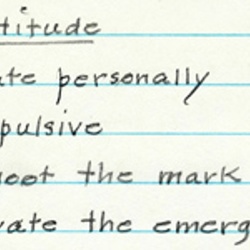 titude
ate personally
pulsive
hoot the mark
vate the emerg